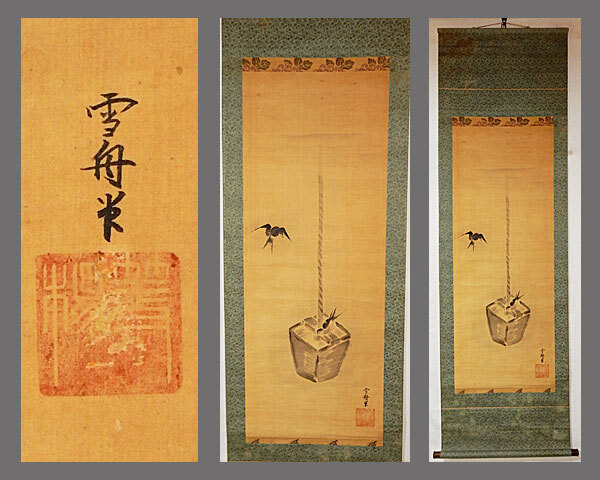 雪舟筆
雪舟筆
雪舟筆